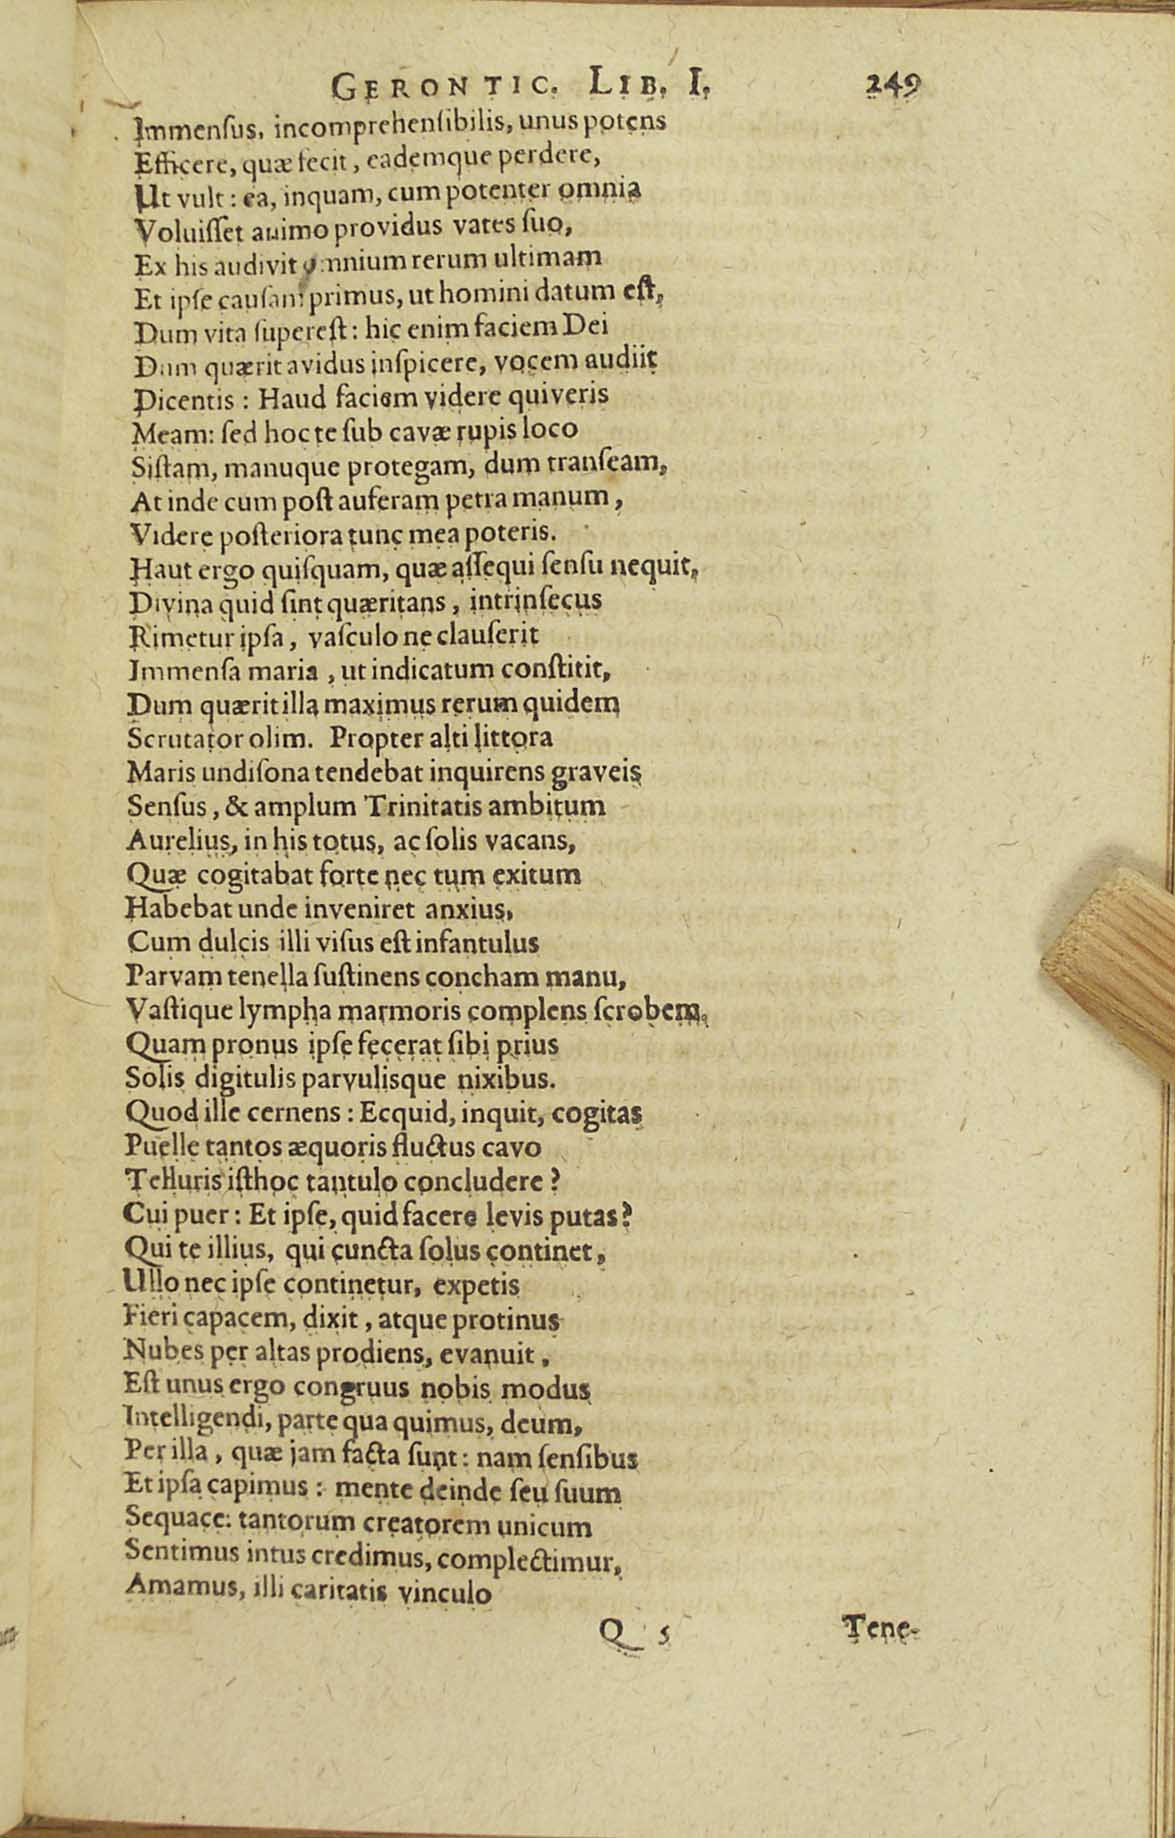 GERONTIC. LIB. I. 249
Immenſus, incomprehenſibilis, unus potens
Efficere, quæ fecit, eademque perdere,
Ut vult: ea, inquam, cum potenter omnia
Voluiſſet animo providus vates ſuo,
Ex his audivit omnium rerum ultimam
Et ipſe cauſam primus, ut homini datum eſt,
Dum vita ſupereſt: hic enim faciem Dei
Dum quærit avidus inſpicere, vocem audiit
Dicentis: Haud faciem videre quiveris
Meam: ſed hoc te ſub cavæ rupis loco
Siſtam, manuque protegam, dum tranſeam,
At inde cum poſt auferam petra manum,
Videre poſteriora tunc mea poteris.
Haut ergo quiſquam, quæ aſſequi ſenſu nequit,
Divina quid ſint quæritans, intrinſecus
Rimetur ipſa, vaſculo ne clauſerit
Immenſa maria, ut indicatum conſtitit,
Dum quærit illa maximus rerum quidem
Scrutator olim. Propter alti littora
Maris undiſona tendebat inquirens graveis
Senſus, & amplum Trinitatis ambitum
Aurelius, in his totus, ac ſolis vacans,
Quæ cogitabat forte nec tum exitum
Habebat unde inveniret anxius,
Cum dulcis illi viſus eſt infantulus
Parvam tenella ſuſtinens concham manu,
Vaſtique lympha marmoris complens ſcrobem,
Quam pronus ipſe fecerat ſibi prius
Solis digitulis parvulisque nixibus.
Quod ille cernens: Ecquid, inquit, cogitas
Puelle tantos æquoris fluctus cavo
Telluris iſthoc tantulo concludere?
Cui puer: Et ipſe, quid facere levis putas?
Qui te illius, qui cuncta ſolus continet,
Ullo nec ipſe continetur, expetis
Fieri capacem, dixit, atque protinus
Nubes per altas prodiens, evanuit.
Eſt unus ergo congruus nobis modus
Intelligendi, parte qua quimus, deum,
Per illa, quæ jam facta ſunt: nam ſenſibus
Et ipſa capimus: mente deinde ſeu ſuum
Sequace: tantorum creatorem unicum
Sentimus intus credimus, complectimur,
Amamus, illi caritatis vinculo
Q 5 Tene-